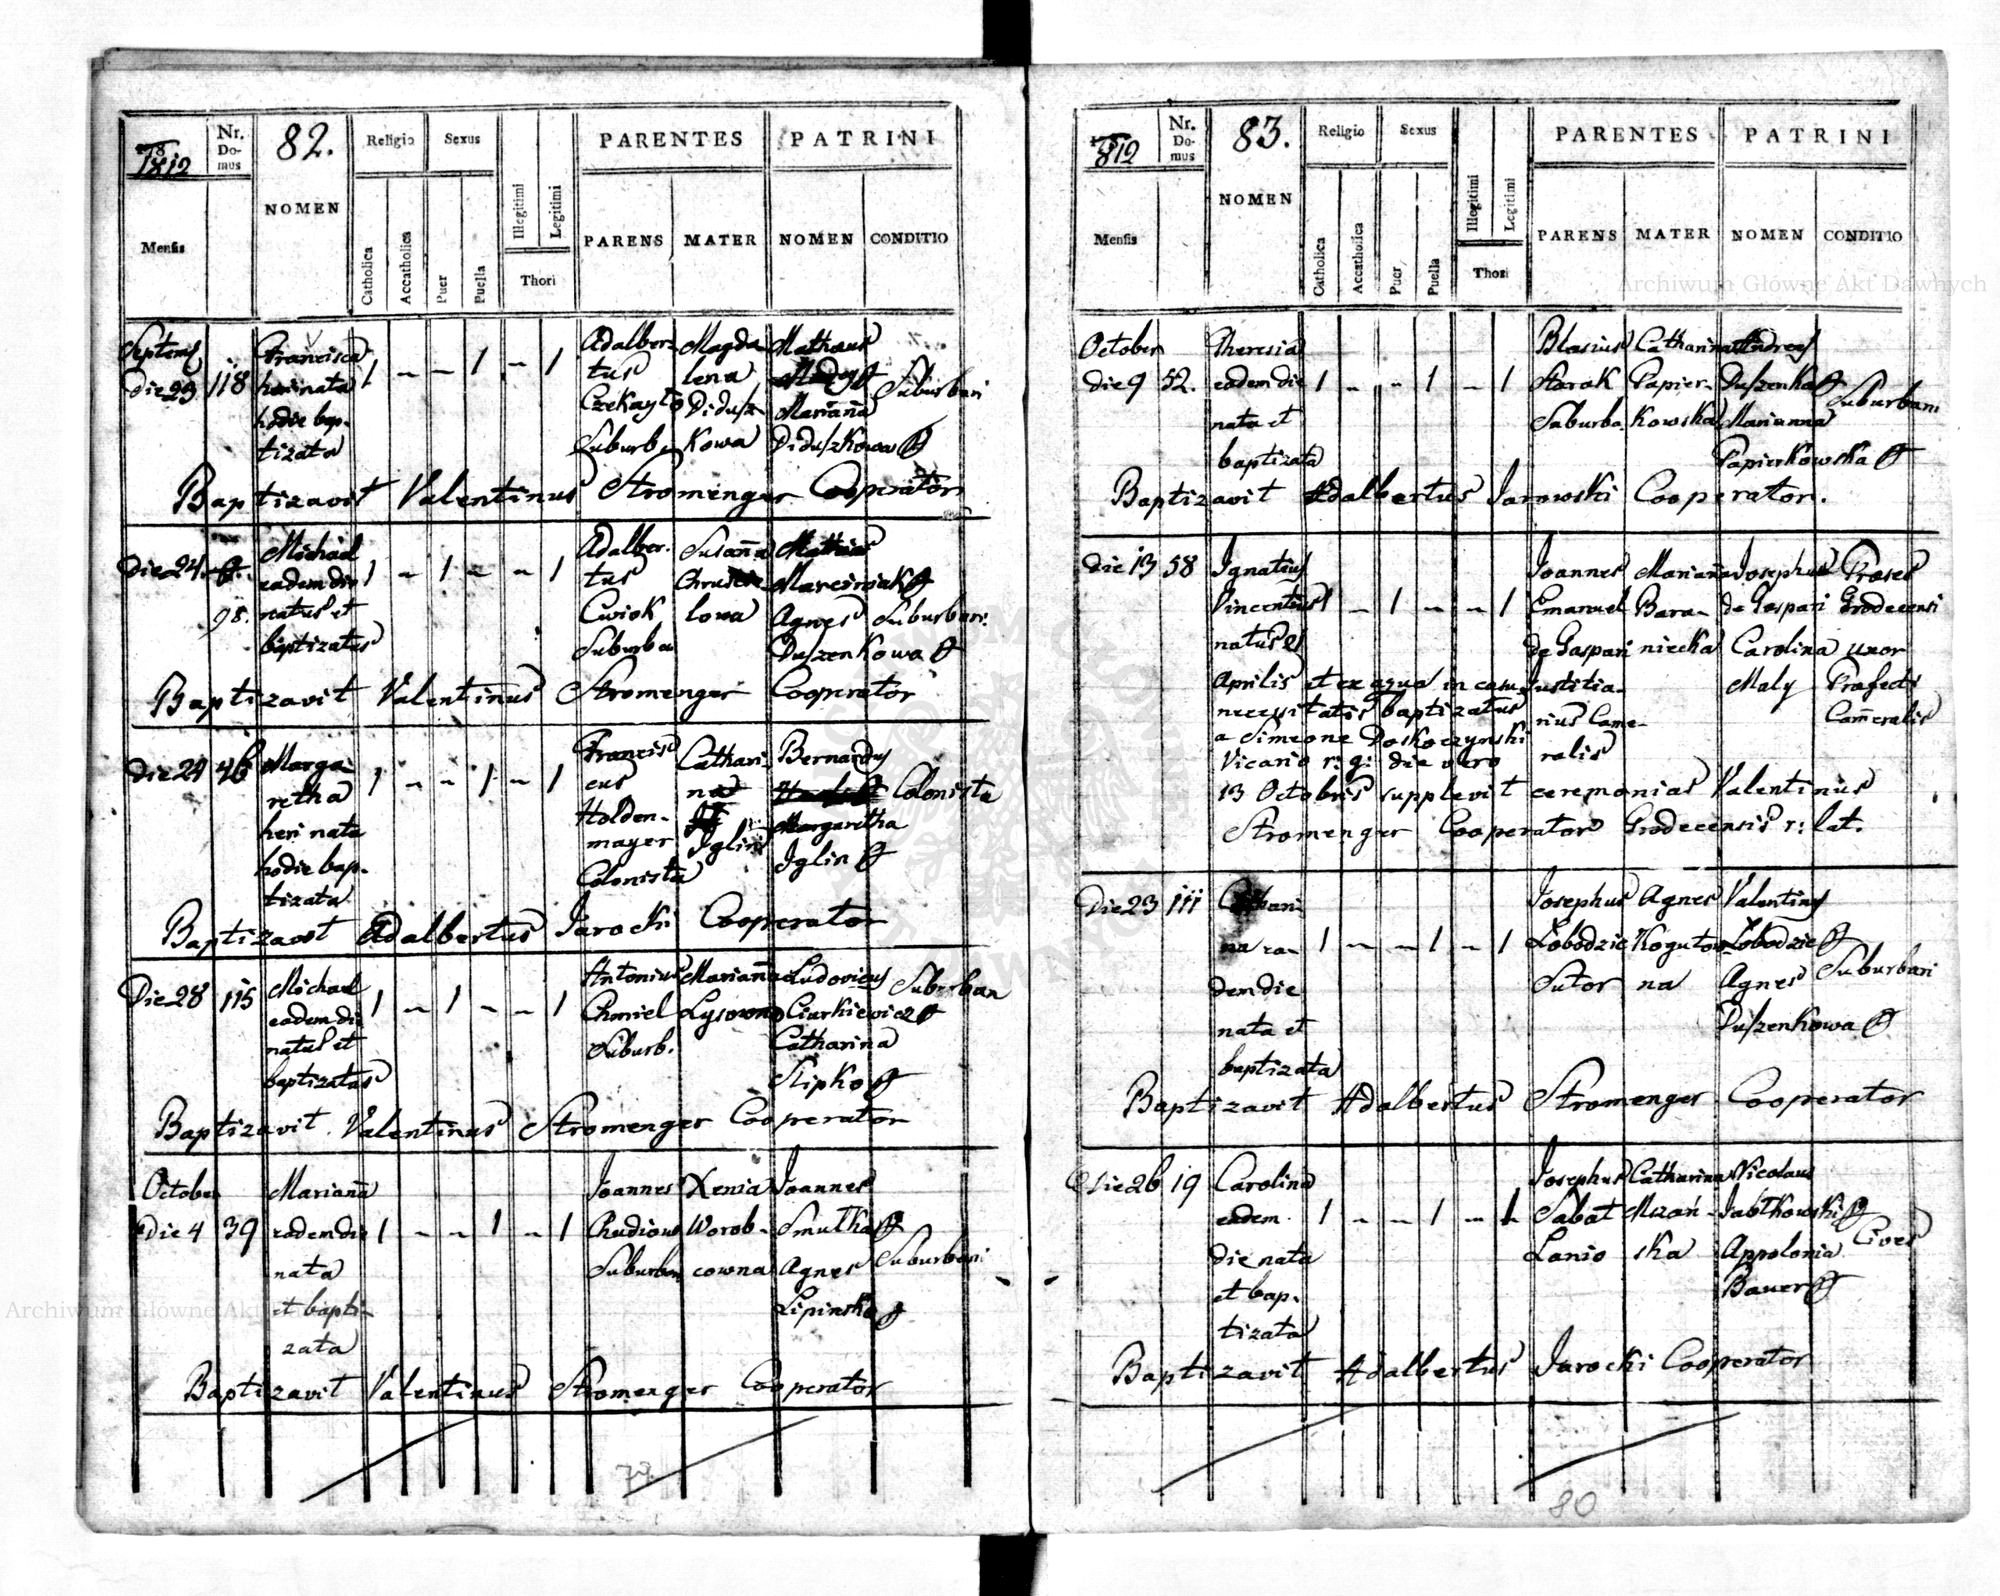 1812
Nr. Domus
82.
NOMEN
Religio
Sexus
PARENTES
PATRINI
Mensis
Catholica
Accatholica
Puer
Puella
Illegitimi
Legitimi
Thori
PARENS
MATER
NOMEN
CONDITIO
Septemb
Die 23
118
Francisca
heri nata
hodie bap-
tizata
1 – – 1 – 1
Adalber-
tus
Suburb
Magda
lena
Didusz-
kowa
Mathaeus
Marianna
Diduszkowa
Suburbani
Baptizavit Valentinus Stromenger Cooperator
Die 24.
98.
Michael
eadem die
natus et
baptizatus
1 – 1 – – 1
Adalber-
tus
Cwiok
Suburba
Susanna
lowa
Mathias
Marciniak
Agnes
Duszenkowa
Suburbani
Baptizavit Valentinus Stromenger Cooperator
Die 24
46
Marga-
retha
heri nata
hodie bap-
tizata
1 – – 1 – 1
Francis
cus
Holden-
mayer
Colonista
Cathari-
na
Iglin
Bernardus
Margaretha
Iglin
Colonista
Baptizavit Adalbertus Jarocki Cooperator
Die 28
115
Michael
eadem die
natus et
baptizatus
1 – 1 – – 1
Antonius
Chmiel
Suburb.
Marianna
Lysowna
Ludovicus
Ciurkiewicz
Catharina
Slipko
Suburban
Baptizavit Valentinus Stromenger Cooperator
October
Die 4
39
Marianna
eadem die
nata
et bapti-
zata
1 – – 1 – 1
Joannes
Chudiow
Suburban
Xenia
Worob-
cowna
Joannes
Smulka
Agnes
Lipinska
Suburbani
Baptizavit Valentinus Stromenger Cooperator
79
1812
Nr. Domus
83.
NOMEN
Religio
Sexus
PARENTES
PATRINI
Mensis
Catholica
Accatholica
Puer
Puella
Illegitimi
Legitimi
Thori
PARENS
MATER
NOMEN
CONDITIO
October
Die 9
52.
Theresia
eadem die
nata et
baptizata
1 – – 1 – 1
Blasius
Starak
Suburba
Catharina
Papier-
kowska
Andreas
Duszenka
Marianna
Papierkowska
Suburbani
Baptizavit Adalbertus Jarowski Cooperator.
Die 13
58
Ignatius
Vincentius
natus
Aprilis et ex aqua in casu
necessitatis baptizatus
a Simeone Doskoczynski
Vicario r: g: die vero
13 Octobris supplevit ceremonias Valentinus
Stromenger Cooperator Grodecensis r: lat.
1 – 1 – – 1
Joannes
Emanuel
de Gaspari
Justitia-
rius Came-
ralis
Marianna
Bara-
niecka
Josephus
de Gaspari
Carolina
Maly
Proses
Grodecensi
uxor
Praefecti
Cameralis
Die 23
111
Cathari-
na ea-
dem die
nata et
baptizata
1 – – 1 – 1
Josephus
Lobodzic
Sutor
Agnes
Kogutow-
na
Valentinus
Lobodzic
Agnes
Duszenkowa
Suburbani
Baptizavit Adalbertus Stromenger Cooperator
Die 26
19
Carolina
eadem
die nata
et bap-
tizata
1 – – 1 – 1
Josephus
Sabat
Lanio
Catharina
Mzań-
ska
Nicolaus
Jabłkowski
Appolonia
Bauer
Cives
Baptizavit Adalbertus Jarocki Cooperator
80
Archiwum Główne Akt Dawnych
Archiwum Główne Akt